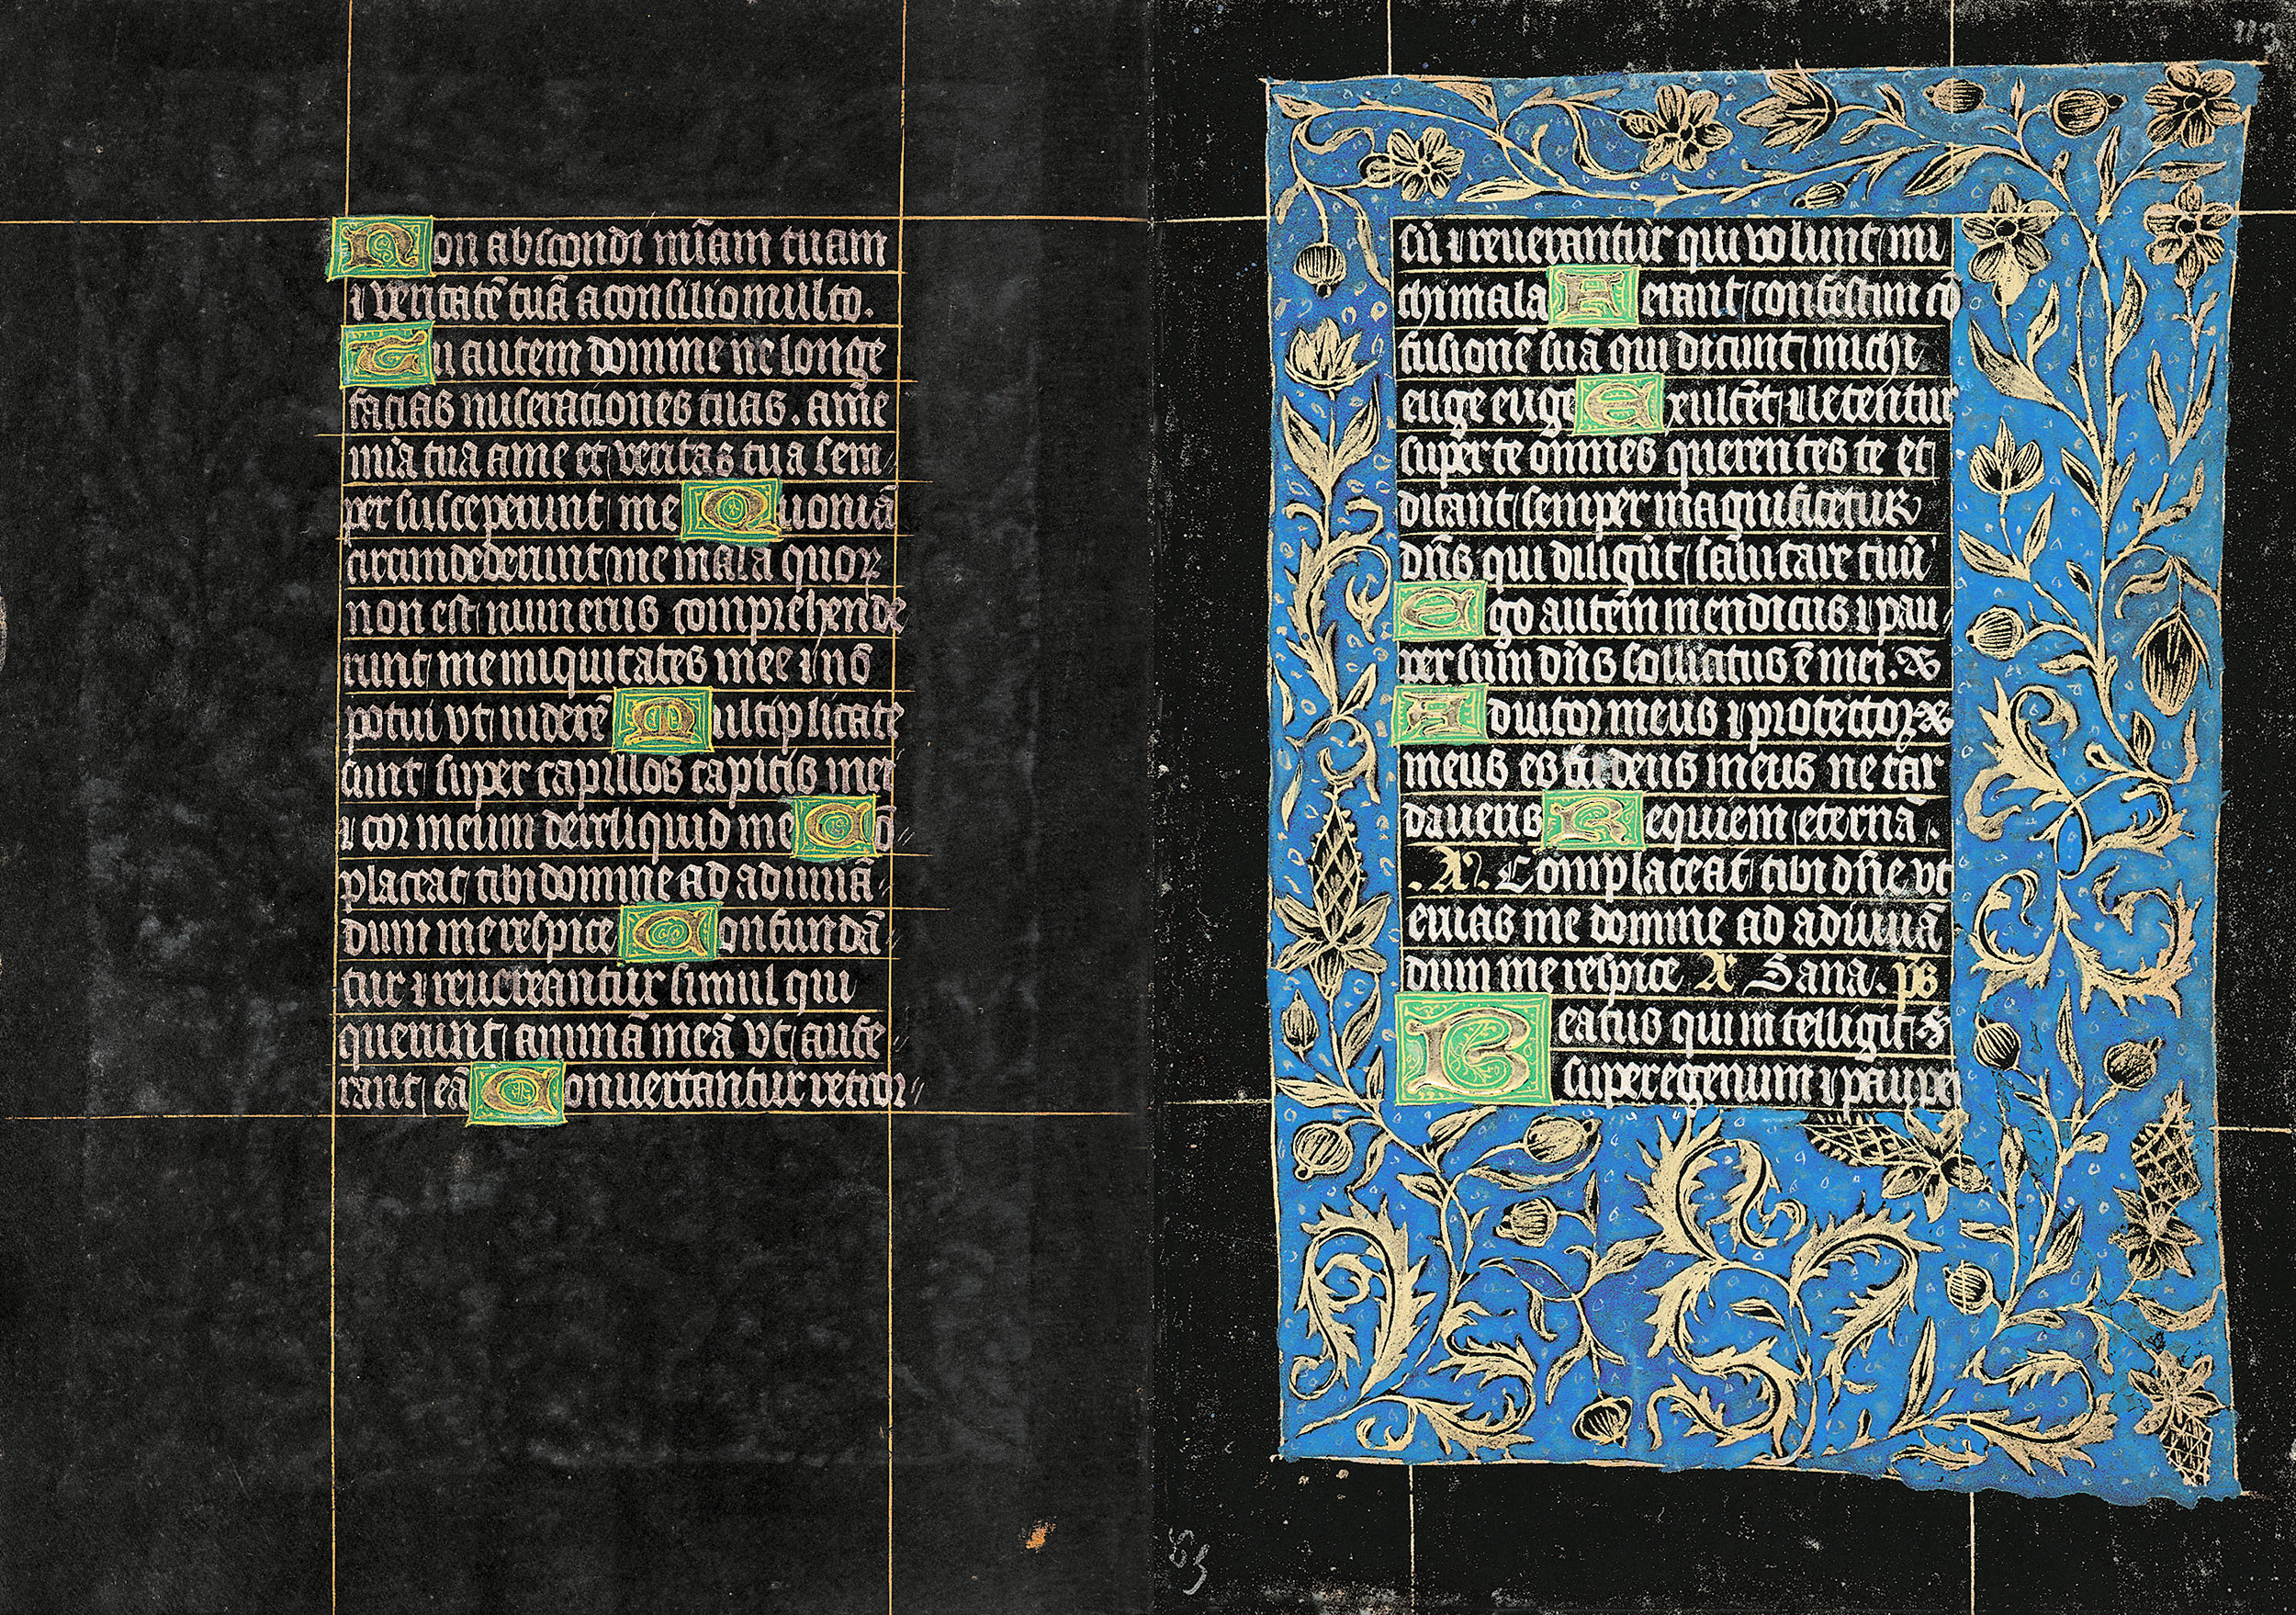 Non abscondi mīam tuam
⁊ veritatē tuā a consilio multo.
Tu autem domine ne longe
facias miserationes tuas. a me
mīa tua a me et veritas tua sem
per susceperunt me Quoniā
circumdederunt me mala quoꝝ
non est numerus comprehende
runt me iniquitates mee ⁊ nō
potui vt viderē Multiplicate
sunt super capillos capitis mei
⁊ cor meum dereliquid me Cō
placeat tibi domine ad adiuuā
dum me respice Confundā
tur ⁊ reuereantur simul qui
querunt animā meā vt aufe
rant eā Conuertantur retror
sū ⁊ reuerantur qui volunt mi
chi mala Ferant confestim cō
fusionē suā qui dicunt michi
euge euge Exultēt ⁊ letentur
super te omnes querentes te et
dicant semper magnificetur
dn̄s qui diligūt salutare tuū
Ego autem mendicus ⁊ pau
per sum dn̄s sollicitus ē mei.
Adiutor meus ⁊ protector
meus es tu deus meus ne tar
daueris Requiem eternā.
.A. Complaceat tibi dn̄e vt
eruas me domine ad adiuuā
dum me respice A Sana. ps
Beatus qui intelligit
super egenum ⁊ paupe
113
63